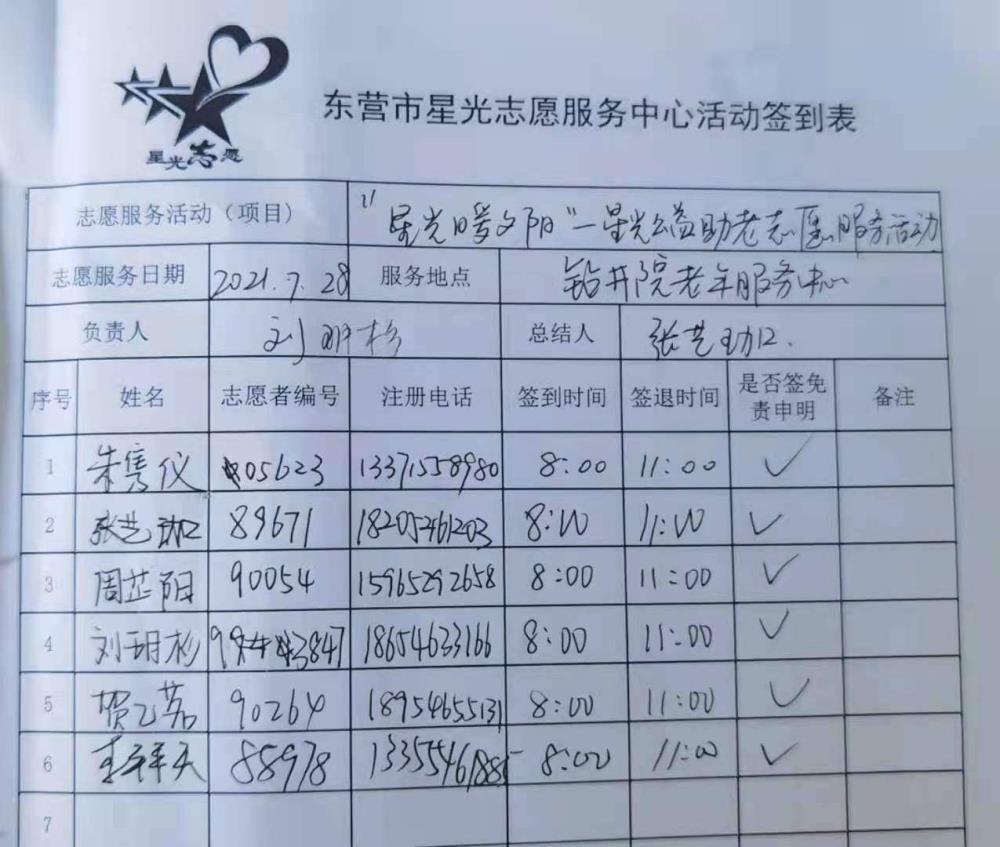 星光志愿
东营市星光志愿服务中心活动签到表
志愿服务活动（项目） "星光暖夕阳"—星光公益助老志愿服务活动
志愿服务日期 2021.7.28 服务地点 钻井院老年服务中心
负责人 刘玥杉 总结人 张艺
序号 姓名 志愿者编号 注册电话 签到时间 签退时间 是否签免责申明 备注
1 朱隽仪 05623 13371558980 8:00 11:00 ✓
2 张艺 89671 18205461203 8:00 11:00 ✓
3 周芷阳 90054 15965292658 8:00 11:00 ✓
4 刘玥杉 18654633166 8:00 11:00 ✓
5 贺乙茗 90264 18954655131 8:00 11:00 ✓
6 88978 8:00 11:00 ✓
7